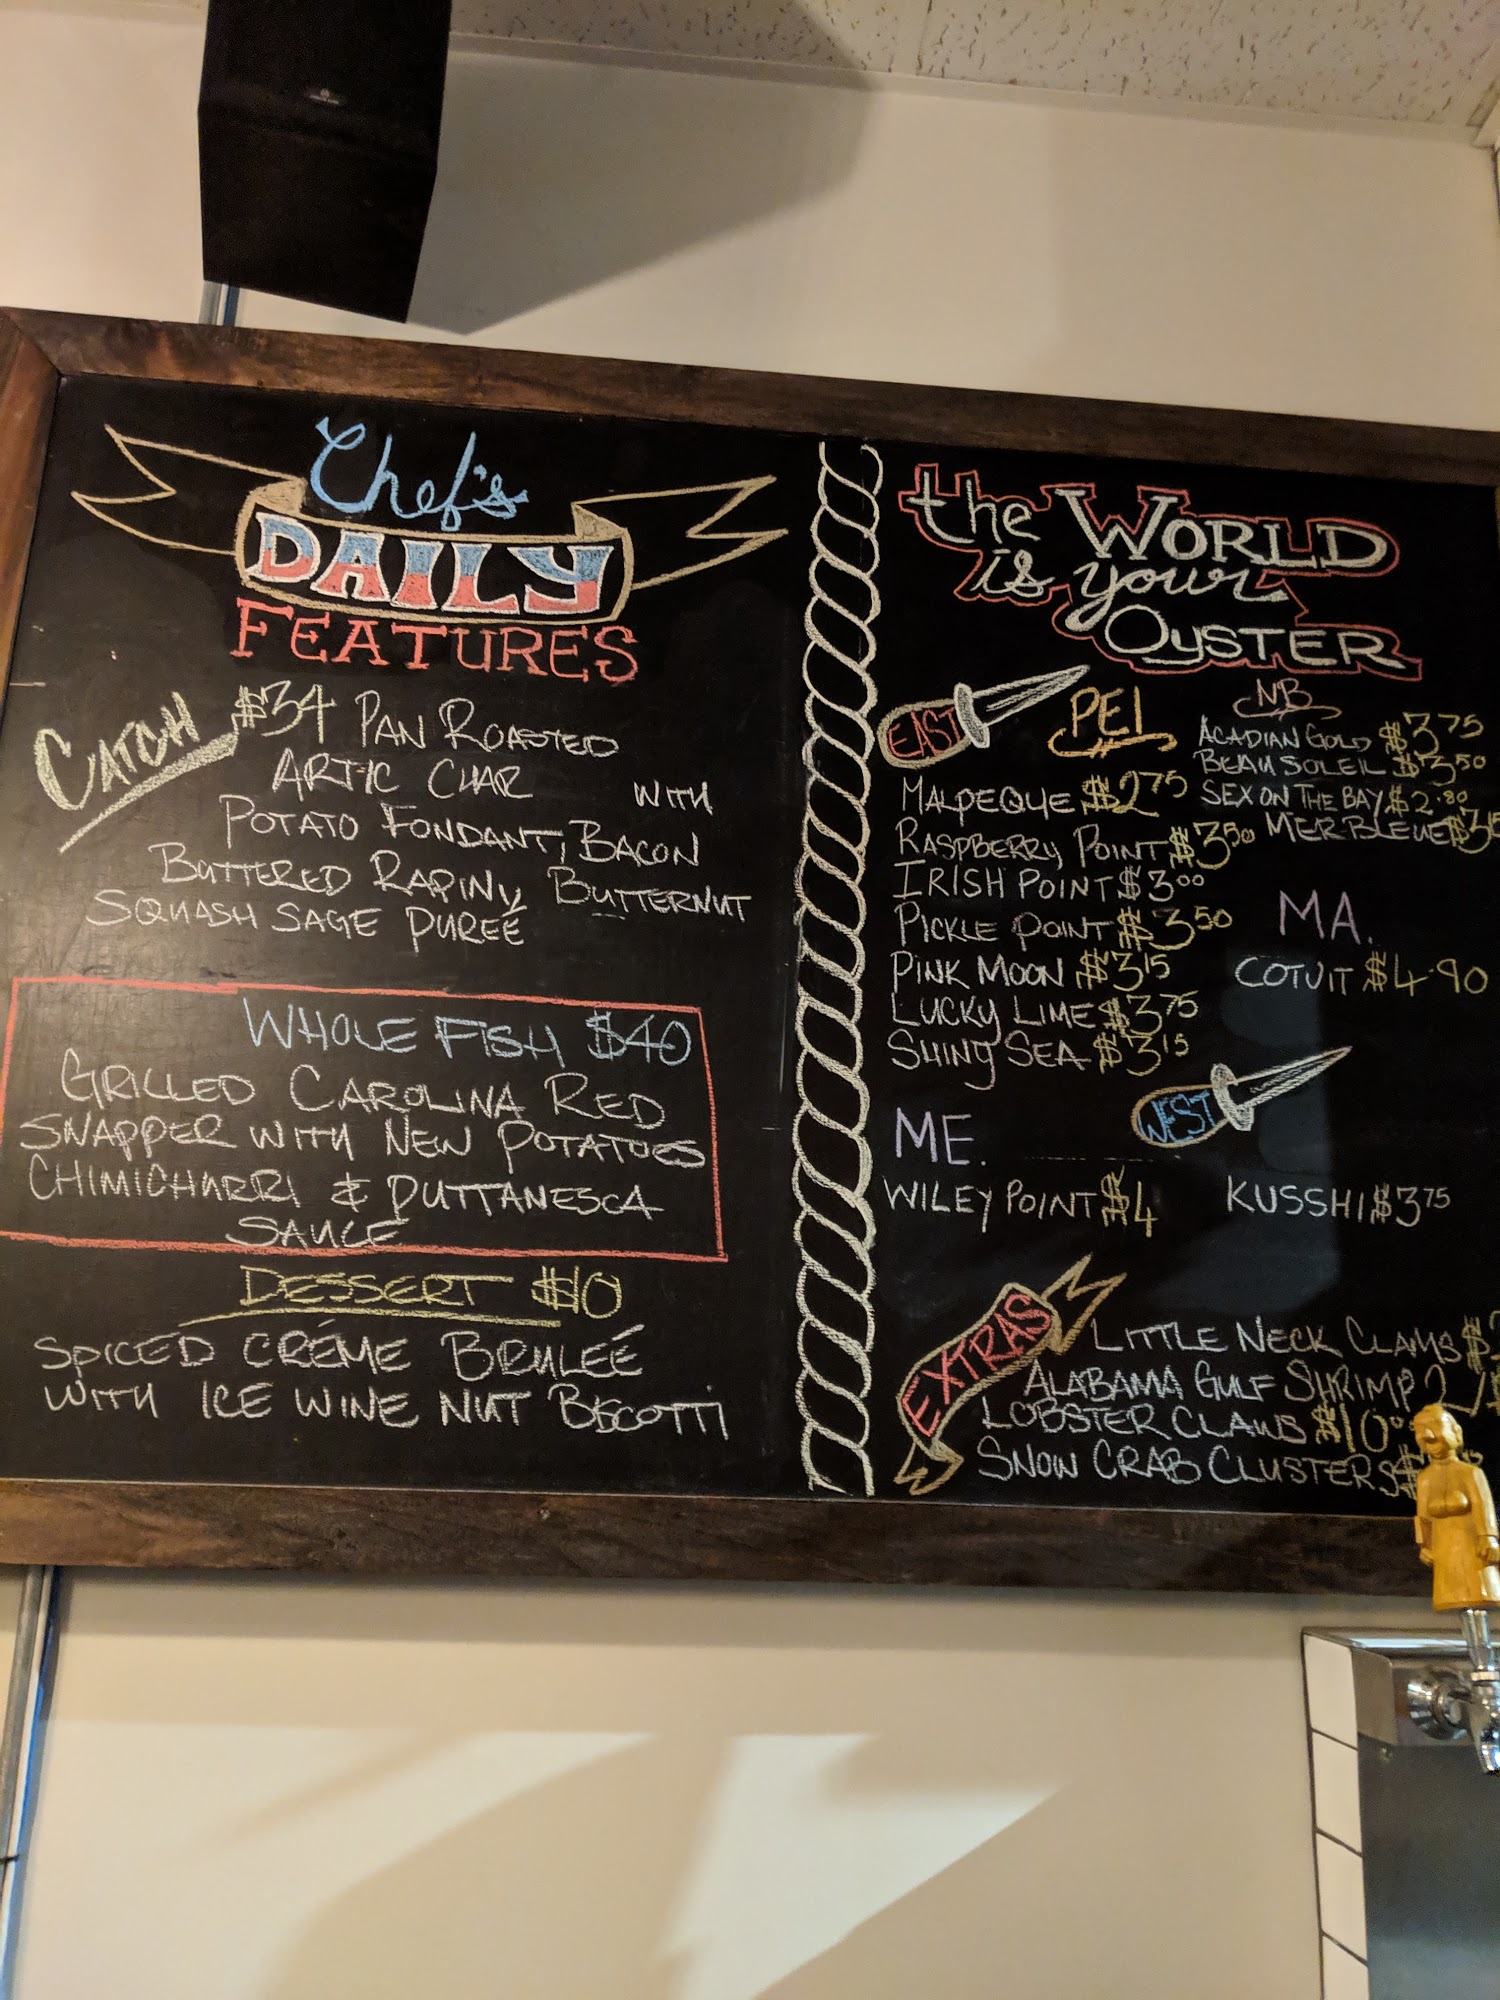 Chef's
DAILY
FEATURES
CATCH $34 PAN ROASTED
ARTIC CHAR WITH
POTATO FONDANT, BACON
BUTTERED RAPINI, BUTTERNUT
SQUASH SAGE PUREÉ
WHOLE FISH $40
GRILLED CAROLINA RED
SNAPPER WITH NEW POTATOES
CHIMICHURRI & PUTTANESCA
SAUCE
DESSERT $10
SPICED CRÉME BRULEÉ
WITH ICE WINE NUT BISCOTTI
the WORLD
is your
OYSTER
EAST
PEI
MALPEQUE $2.75
RASPBERRY POINT $3.50
IRISH POINT $3.00
PICKLE POINT $3.50
PINK MOON $3.15
LUCKY LIME $3.75
SHINY SEA $3.15
NB
ACADIAN GOLD $3.75
BEAU SOLEIL $3.50
SEX ON THE BAY $2.80
MER BLEUE
MA.
COTUIT $4.90
ME.
WILEY POINT $4
WEST
KUSSHI $3.75
EXTRAS
LITTLE NECK CLAMS
ALABAMA GULF SHRIMP
LOBSTER CLAWS $10
SNOW CRAB CLUSTERS